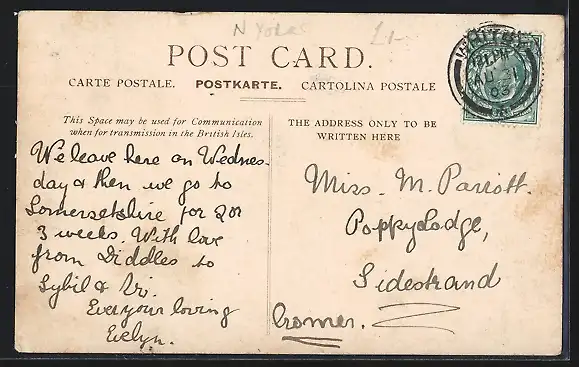 N York
£1-
POST CARD.
CARTE POSTALE. POSTKARTE. CARTOLINA POSTALE
This Space may be used for Communication
when for transmission in the British Isles.
THE ADDRESS ONLY TO BE
WRITTEN HERE
We leave here on Wednes-
day & then we go to
Somersetshire for 2 or
3 weeks. With love
from Diddles to
Sybil & Vi.
Ever your loving
Evelyn.
Miss. M. Parrott.
Poppylodge,
Sidestrand
Cromer.
AU 31
03